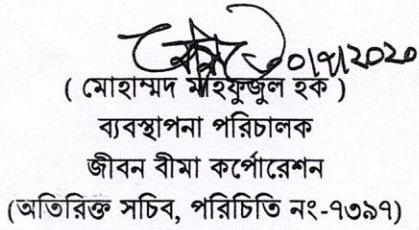 ০১/৭/২০২০
( মোহাম্মদ মাহফুজুল হক )
ব্যবস্থাপনা পরিচালক
জীবন বীমা কর্পোরেশন
(অতিরিক্ত সচিব, পরিচিতি নং-৭৩৯৭)